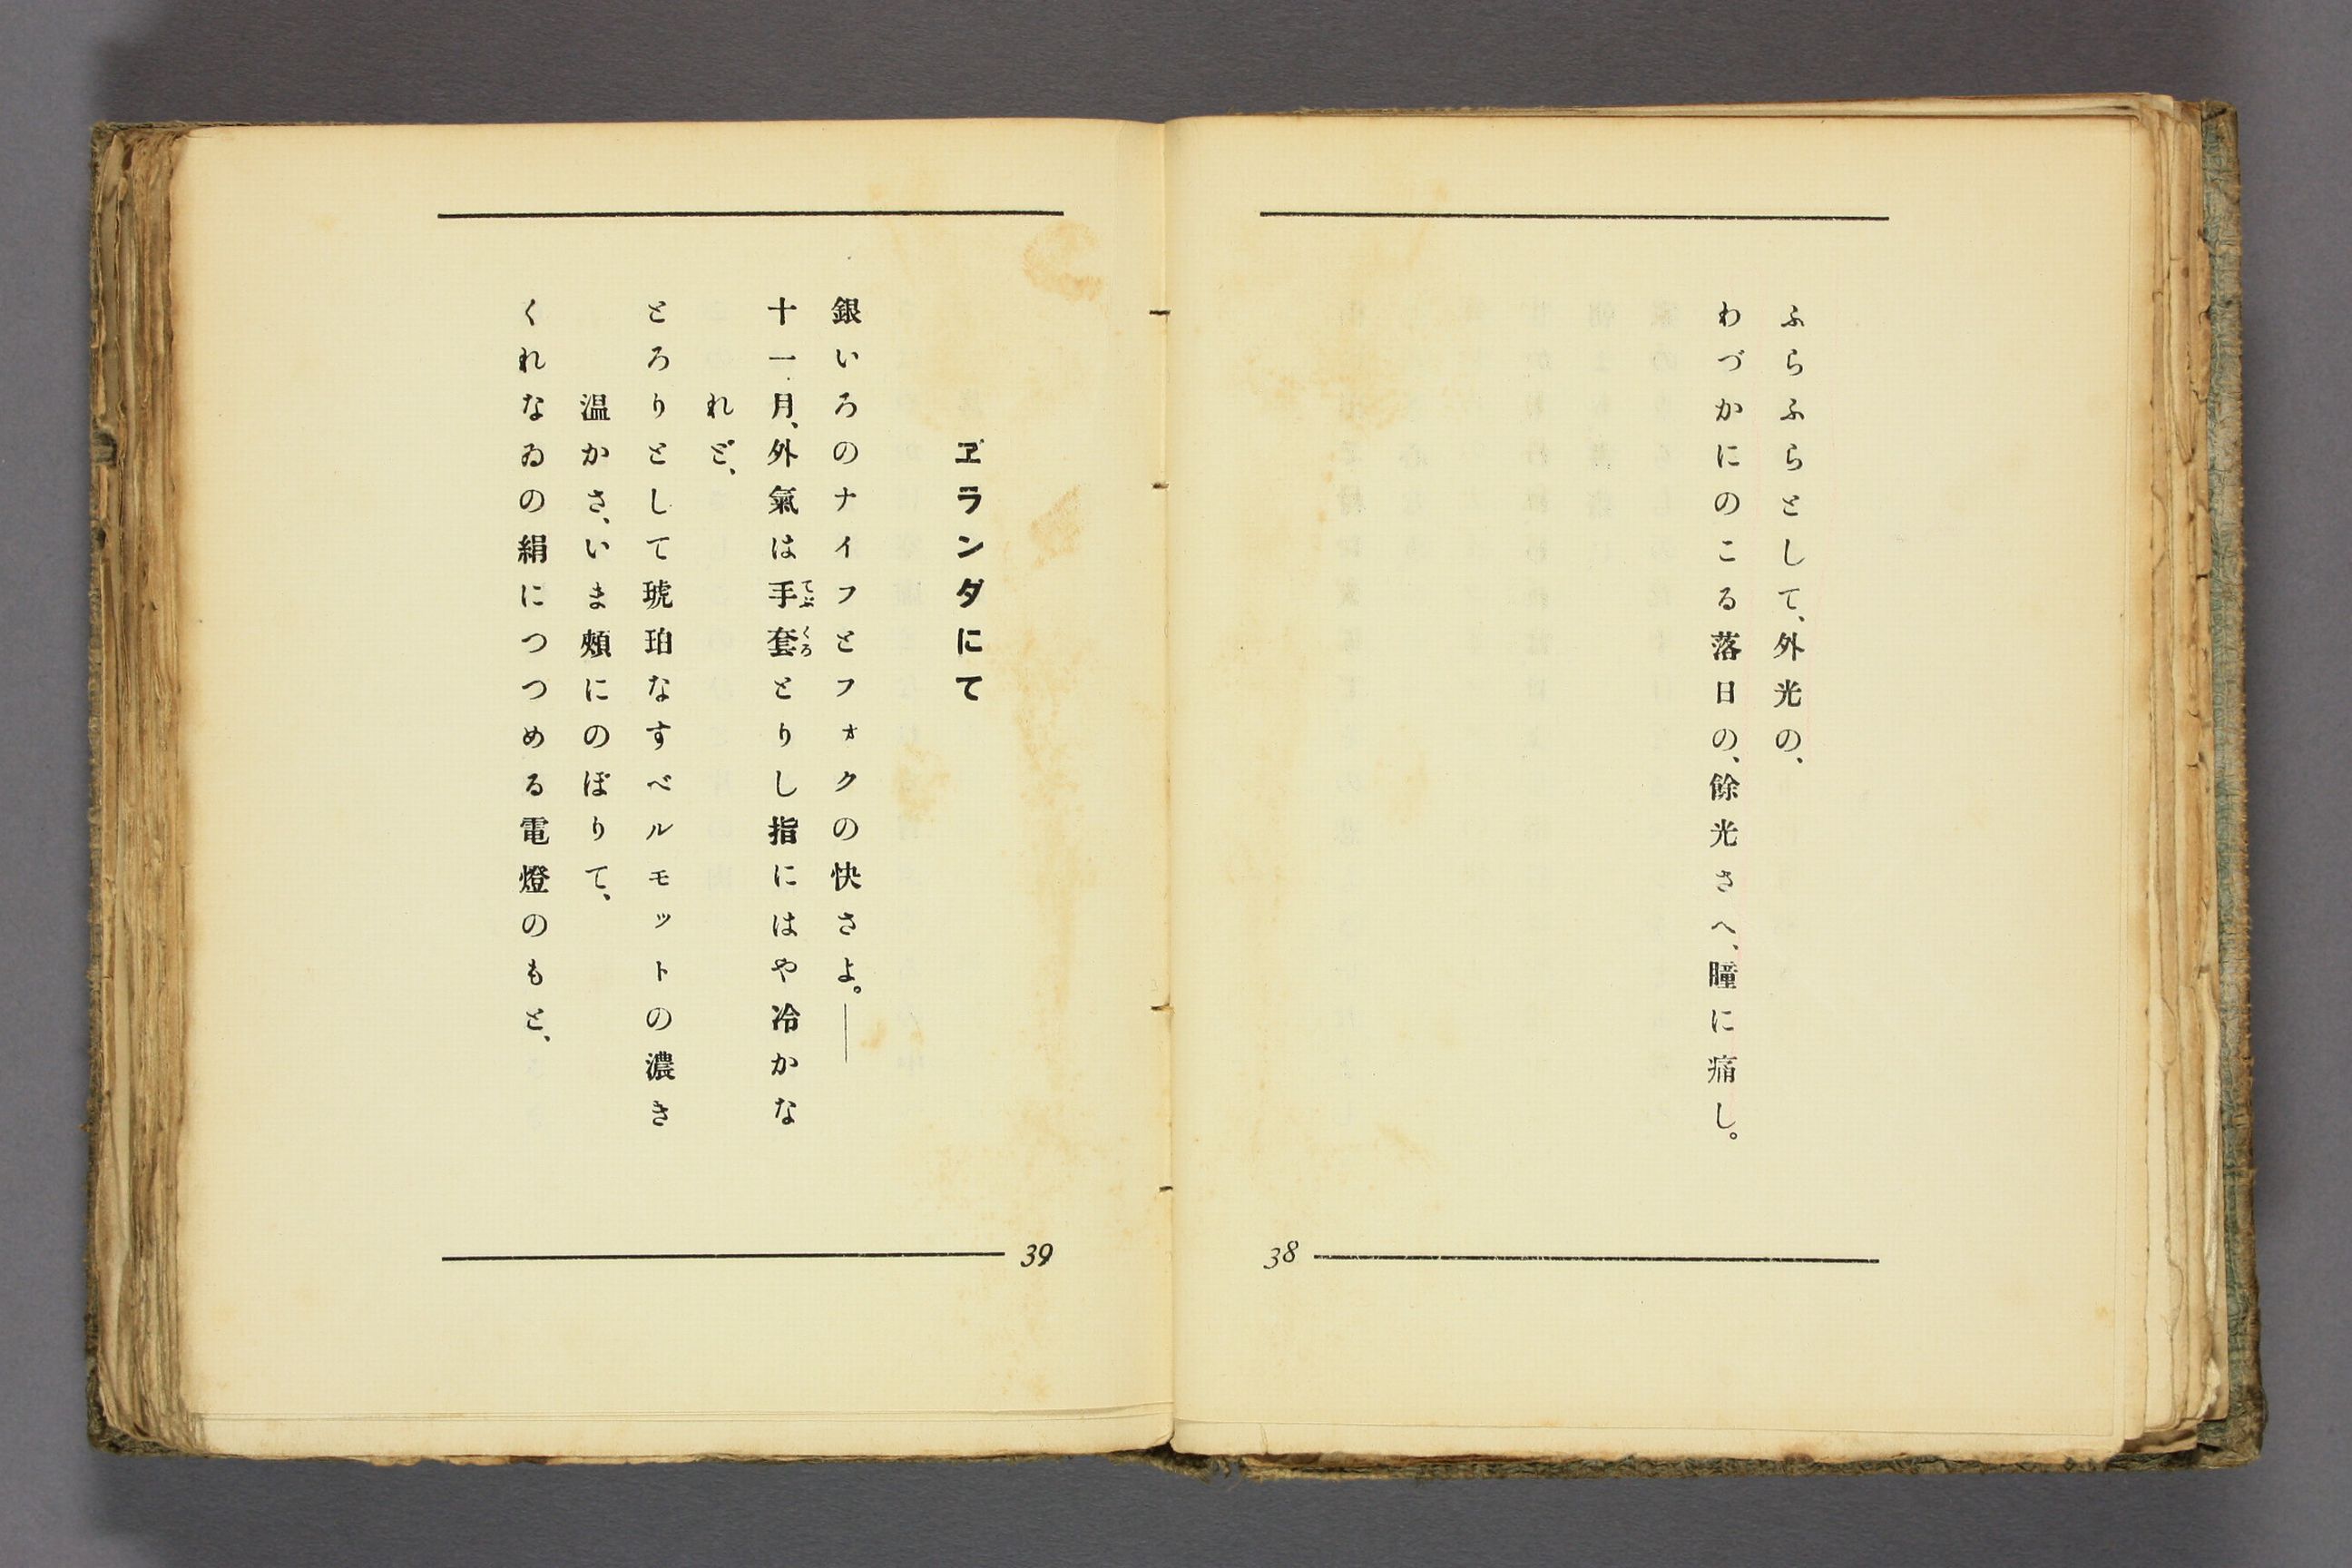 ふらふらとして、外光の、
わづかにのこる落日の、餘光さへ、瞳に痛し。
38
ヱランダにて
銀いろのナイフとフォクの快さよ。――
十一月、外氣は手套とりし指にはや冷かな
てぶくろ
れど、
とろりとして琥珀なすベルモットの濃き
温かさ、いま頰にのぼりて、
くれなゐの絹につつめる電燈のもと、
39